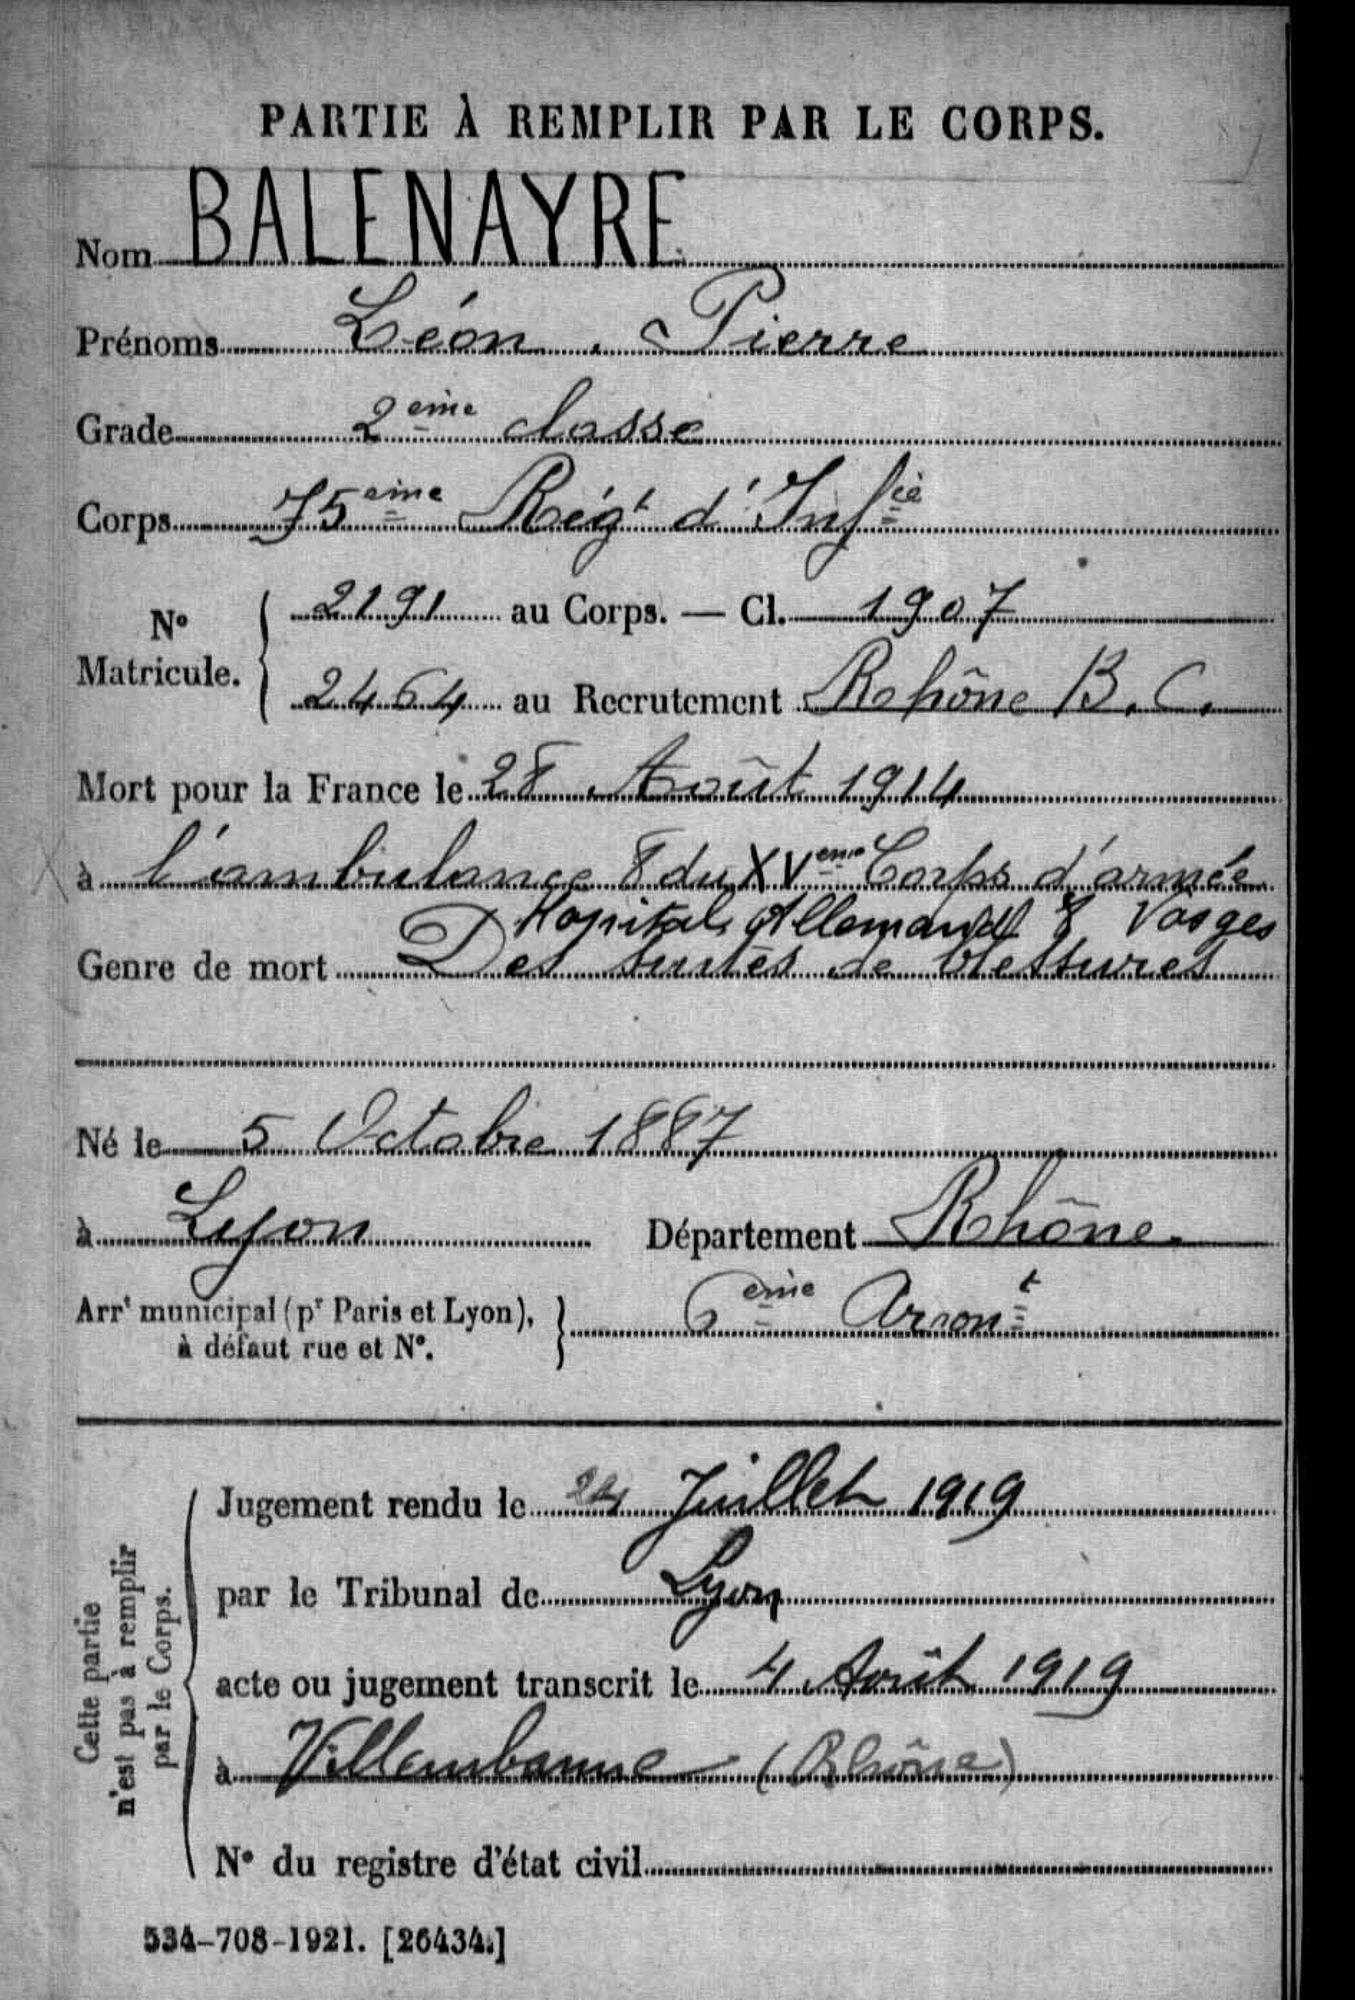 PARTIE À REMPLIR PAR LE CORPS.
Nom BALENAYRE
Prénoms Léon, Pierre
Grade 2ème classe
Corps 75ème Régt d'Infie
No Matricule. { 2191 au Corps. — Cl. 1907
2464 au Recrutement Rhône B. C.
Mort pour la France le 28 Août 1914
à l'ambulance 8 du XVeme Corps d'armée
Hopital Allemand 8 Vosges
Genre de mort Des suites de blessures
Né le 5 Octobre 1887
à Lyon Département Rhône
Arrt municipal (pr Paris et Lyon), à défaut rue et No. } 6ème Arront
Cette partie n'est pas à remplir par le Corps.
Jugement rendu le 24 Juillet 1919
par le Tribunal de Lyon
acte ou jugement transcrit le 4 Août 1919
à Villeurbanne (Rhône)
No du registre d'état civil
534-708-1921. [26434.]